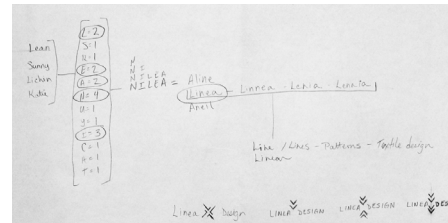 Lean
Sunny
Lizhan
Katia
L=2
S=1
U=1
E=2
A=2
N=4
y=1
I=3
K=1
T=1
N
NI
NILEA
NILEA =
Aline
Linea
Aneil
Linnea - Lenia - Lennia
Line / Lines - Patterns - Textile design
Linear
Linea Design
LINEA DESIGN
LINEA DESIGN
LINEA DES